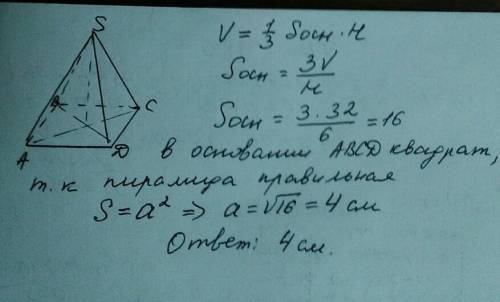 S
B
C
A
D
V = 1/3 Sосн · H
Sосн = 3V/H
Sосн = 3·32/6 = 16
в основании ABCD квадрат,
т.к пирамида правильная
S = a² => a = √16 = 4 см
Ответ: 4 см.